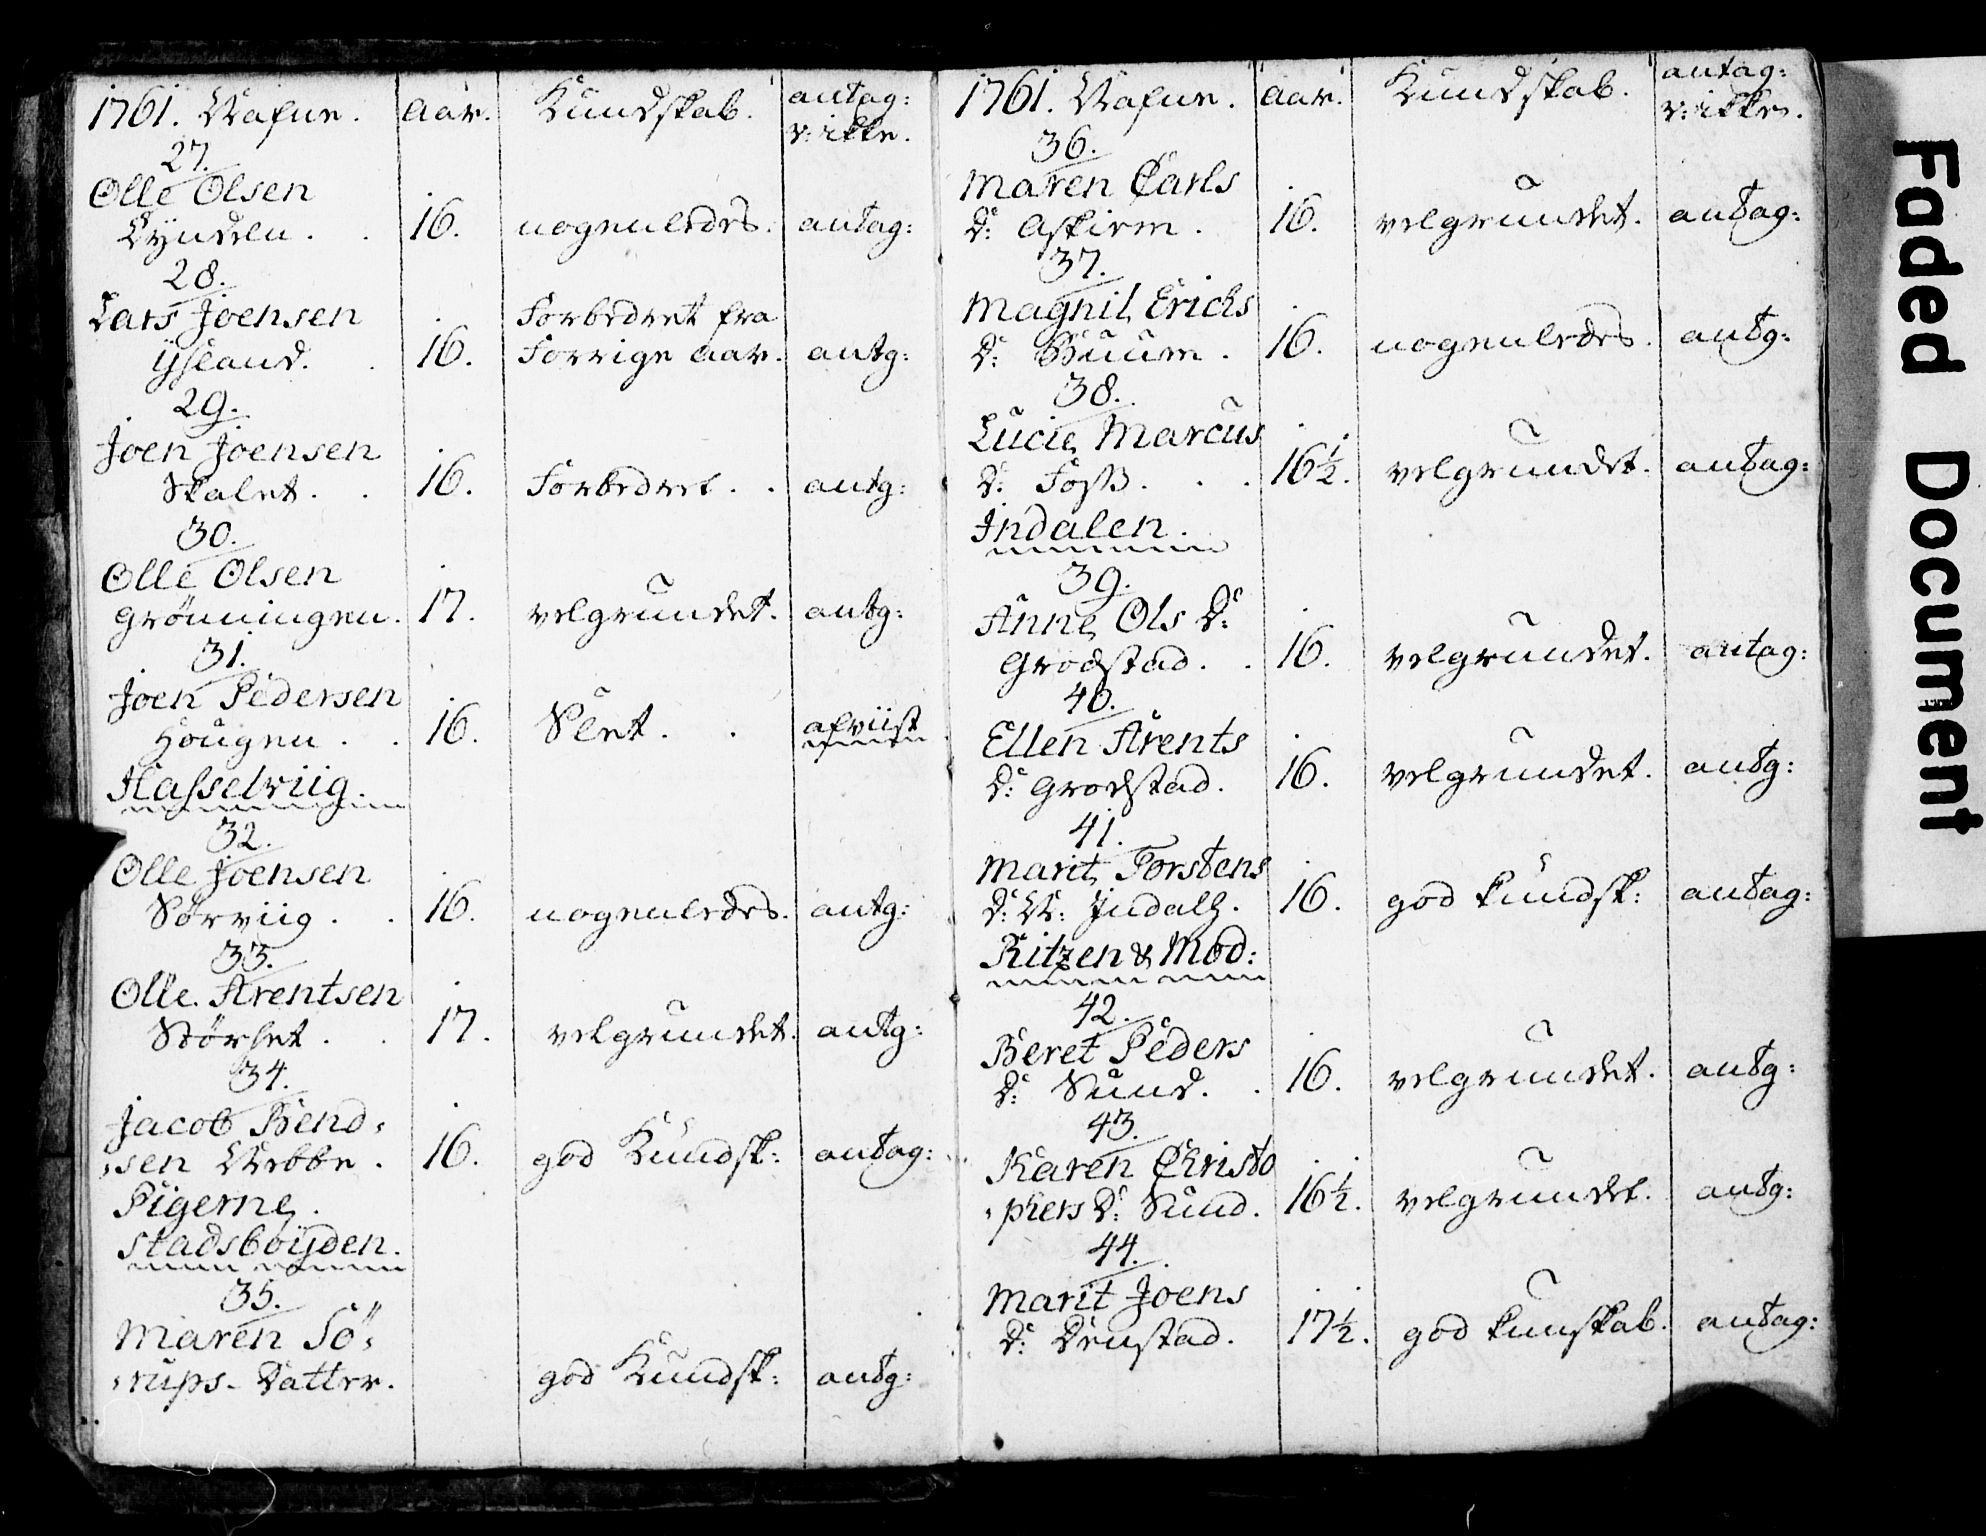 1761. Nafne. aar. Kundskab. antag:
r: ikke.
27.
Olle Olsen
Lynden . . 16. nogenledes. antag:
28.
Lars Joensen Forbedret fra
Ysland. . 16. Forrige aar. antg:
29.
Joen Joensen
Skalet. . 16. Forbedret . . antg:
30.
Olle Olsen
Grönningen. 17. velgrundet. antg:
31.
Joen Pedersen
Hougen . . 16. Slet. . afviist
Hasselviig.
32.
Olle Joensen
Sørviig . . 16. nogenledes. antg:
33.
Olle Arentsen
Størset . . 17. velgrundet. antg:
34.
Jacob Bend:
:sen Nebbe . 16. god Kundsk: antag:
Pigerne.
Stadsböyden.
35.
Maren Sö:
:rups- Datter. god Kundsk: antg:
1761. Nafne. aar. Kundskab. antag:
r: ikke.
36.
Maren Carls
D: Askiem . 16. velgrundet. antag:
37.
Magnil Erichs
D: Buum . 16. nogenledes. antg:
38.
Lucie Marcus
D: Foss . . . 16½. velgrundet. antag:
Indalen.
39.
Anne Ols D:
Grodstad. . 16. velgrundet. antag:
40.
Ellen Arents
D: Grodstad. 16. velgrundet. antg:
41.
Marit Torstens
D: N: Indals. 16. god kundsk: antag:
Ritzen & Mod:
42.
Beret Peders
D: Sund. . 16. velgrundet. antg:
43.
Karen Christo
:phers D: Sund. 16½. velgrundet. antg:
44.
Marit Joens
D: Denstad. 17½. god kunskab. antag:
Faded Document